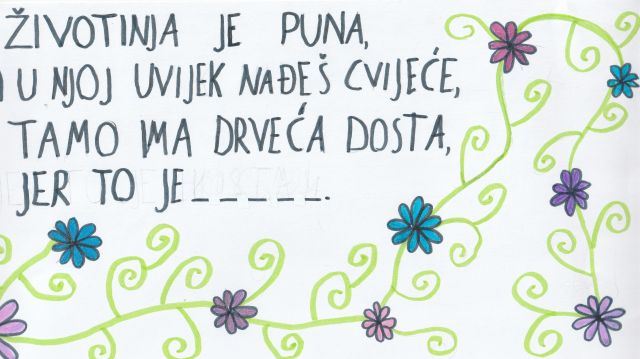 ŽIVOTINJA JE PUNA,
I U NJOJ UVIJEK NAĐEŠ CVIJEĆE,
TAMO IMA DRVEĆA DOSTA,
JER TO JE _ _ _ _ _.